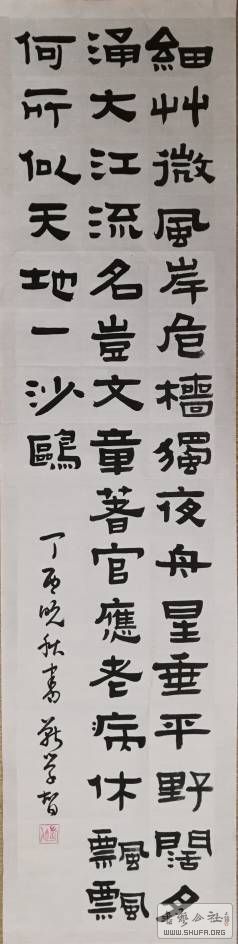 細艸微風岸危檣獨夜舟星垂平野闊月
涌大江流名豈文章著官應老病休飄飄
何所似天地一沙鷗
丁酉晚秋書 靳学智
書藝公社
WWW.SHUFA.ORG